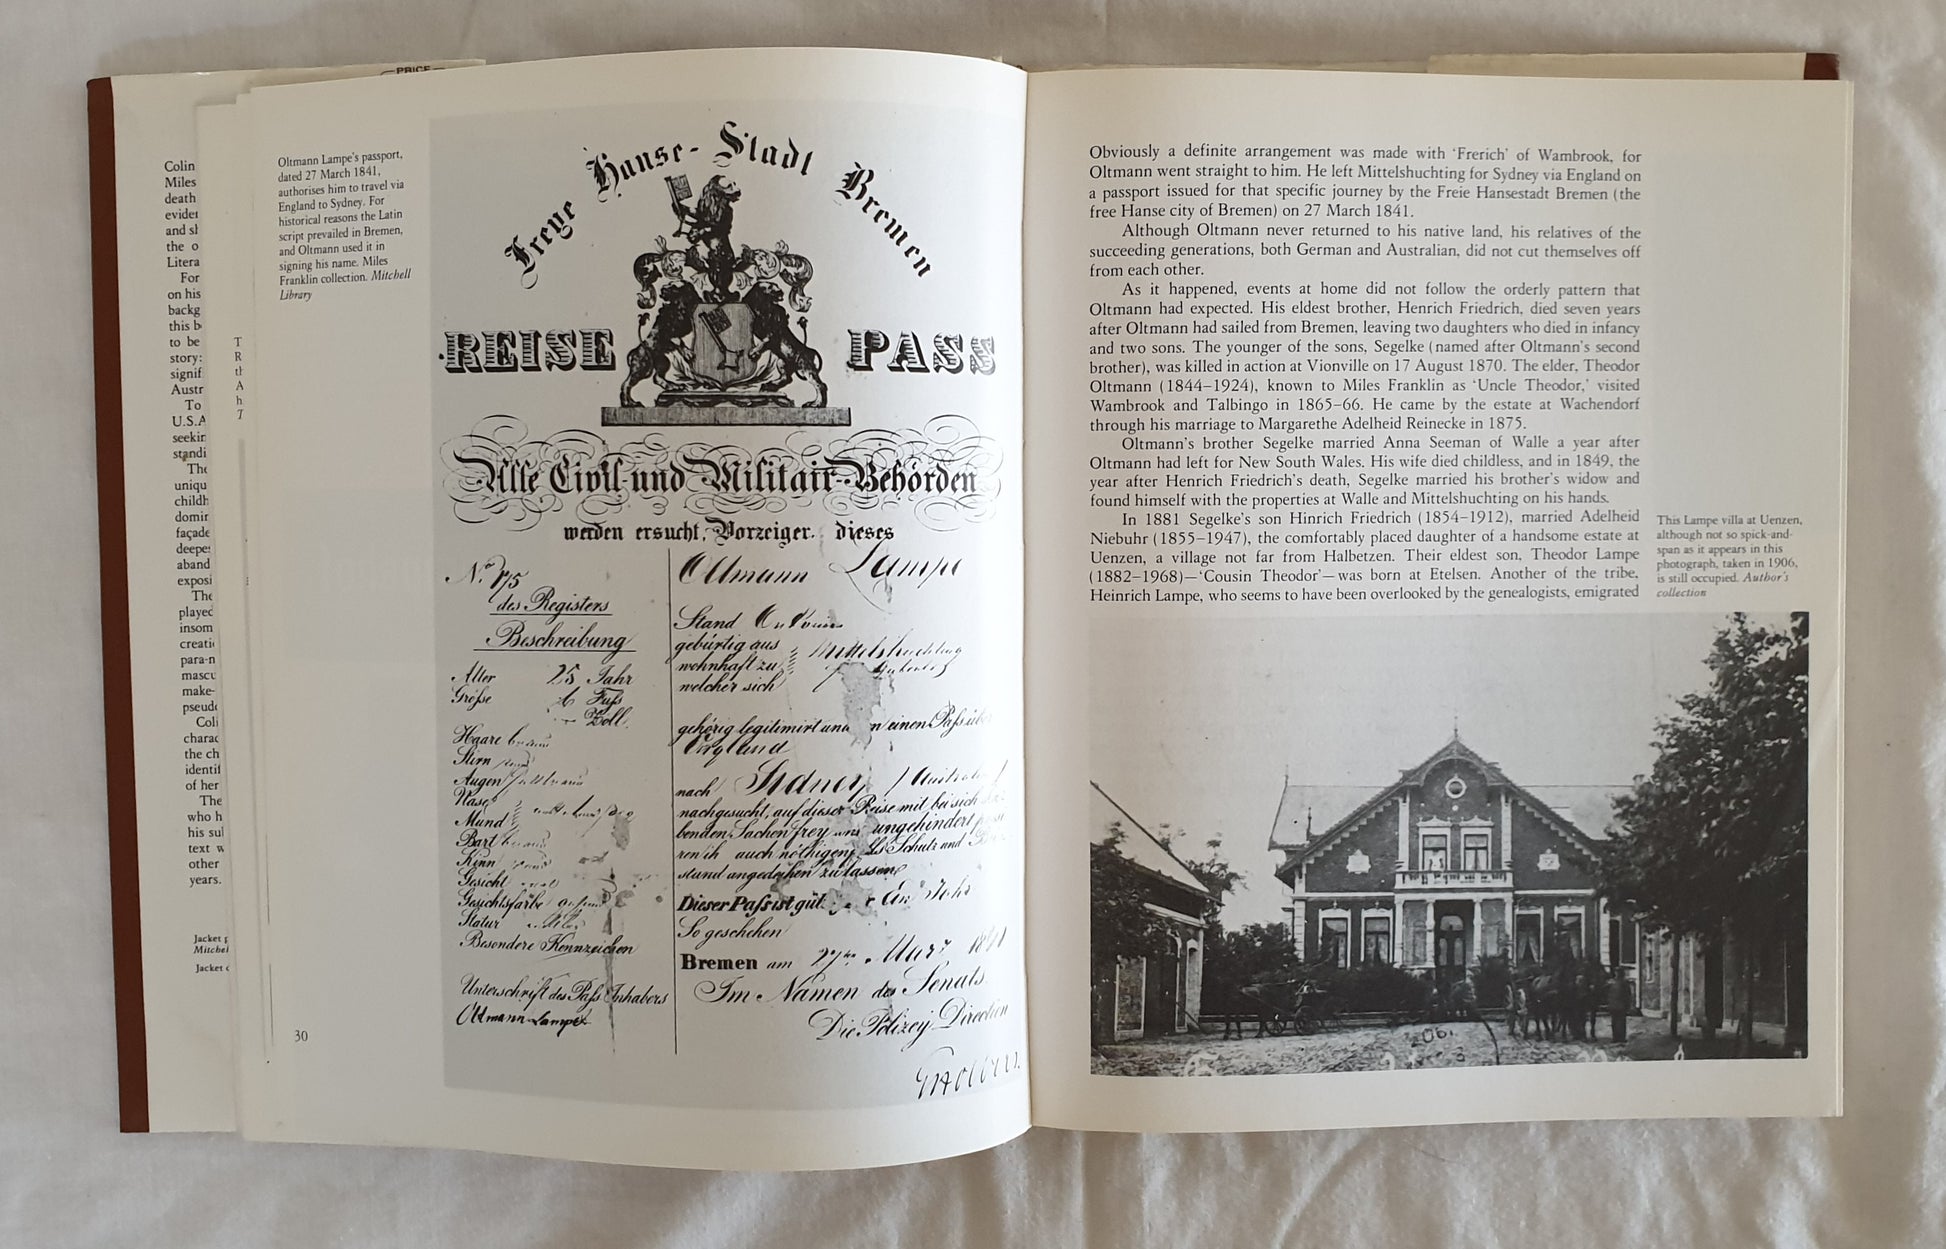 PRICE
Colin
Miles
death
evider
and sh
the o
Litera
For
on his
backg
this b
to be
story:
signif
Austr
To
U.S.A
seekin
standi
The
uniqu
childh
domin
façade
deepes
aband
exposi
The
played
insom
creati
para-n
mascu
make-
pseudo
Coli
charac
the ch
identif
of her
The
who h
his sul
text w
other
years.
Jacket p
Mitchel
Jacket c
Oltmann Lampe's passport,
dated 27 March 1841,
authorises him to travel via
England to Sydney. For
historical reasons the Latin
script prevailed in Bremen,
and Oltmann used it in
signing his name. Miles
Franklin collection. Mitchell
Library
30
Freye Hanse-Stadt Bremen
REISE PASS
Alle Civil- und Militair-Behörden
werden ersucht, Vorzeiger dieses
No.
des Registers
Beschreibung
Alter 25 Jahr
Größe 6 Fuß
Zoll
Haare braun
Stirn
Augen
Nase
Mund
Bart
Kinn
Gesicht
Gesichtsfarbe gesund
Statur
Besondere Kennzeichen
Unterschrift des Paß Inhabers
Oltmann Lampe
Oltmann Lampe
Stand
gebürtig aus Mittelshuchting
wohnhaft zu
welcher sich
gehörig legitimirt und einen Paß über
England
nach Sidney / Australien
nachgesucht, auf dieser Reise mit bei sich
benden Sachen frey und ungehindert
ren ih auch nöthigen Schutz und
stand angedeihen zu lassen
Dieser Paß ist gül Ein Jahr
So geschehen
Bremen am 27ten März 1841
Im Namen des Senats.
Die Polizey Direction
Obviously a definite arrangement was made with 'Frerich' of Wambrook, for
Oltmann went straight to him. He left Mittelshuchting for Sydney via England on
a passport issued for that specific journey by the Freie Hansestadt Bremen (the
free Hanse city of Bremen) on 27 March 1841.
Although Oltmann never returned to his native land, his relatives of the
succeeding generations, both German and Australian, did not cut themselves off
from each other.
As it happened, events at home did not follow the orderly pattern that
Oltmann had expected. His eldest brother, Henrich Friedrich, died seven years
after Oltmann had sailed from Bremen, leaving two daughters who died in infancy
and two sons. The younger of the sons, Segelke (named after Oltmann's second
brother), was killed in action at Vionville on 17 August 1870. The elder, Theodor
Oltmann (1844–1924), known to Miles Franklin as 'Uncle Theodor,' visited
Wambrook and Talbingo in 1865–66. He came by the estate at Wachendorf
through his marriage to Margarethe Adelheid Reinecke in 1875.
Oltmann's brother Segelke married Anna Seeman of Walle a year after
Oltmann had left for New South Wales. His wife died childless, and in 1849, the
year after Henrich Friedrich's death, Segelke married his brother's widow and
found himself with the properties at Walle and Mittelshuchting on his hands.
In 1881 Segelke's son Hinrich Friedrich (1854–1912), married Adelheid
Niebuhr (1855–1947), the comfortably placed daughter of a handsome estate at
Uenzen, a village not far from Halbetzen. Their eldest son, Theodor Lampe
(1882–1968)—'Cousin Theodor'—was born at Etelsen. Another of the tribe,
Heinrich Lampe, who seems to have been overlooked by the genealogists, emigrated
This Lampe villa at Uenzen,
although not so spick-and-
span as it appears in this
photograph, taken in 1906,
is still occupied. Author's
collection